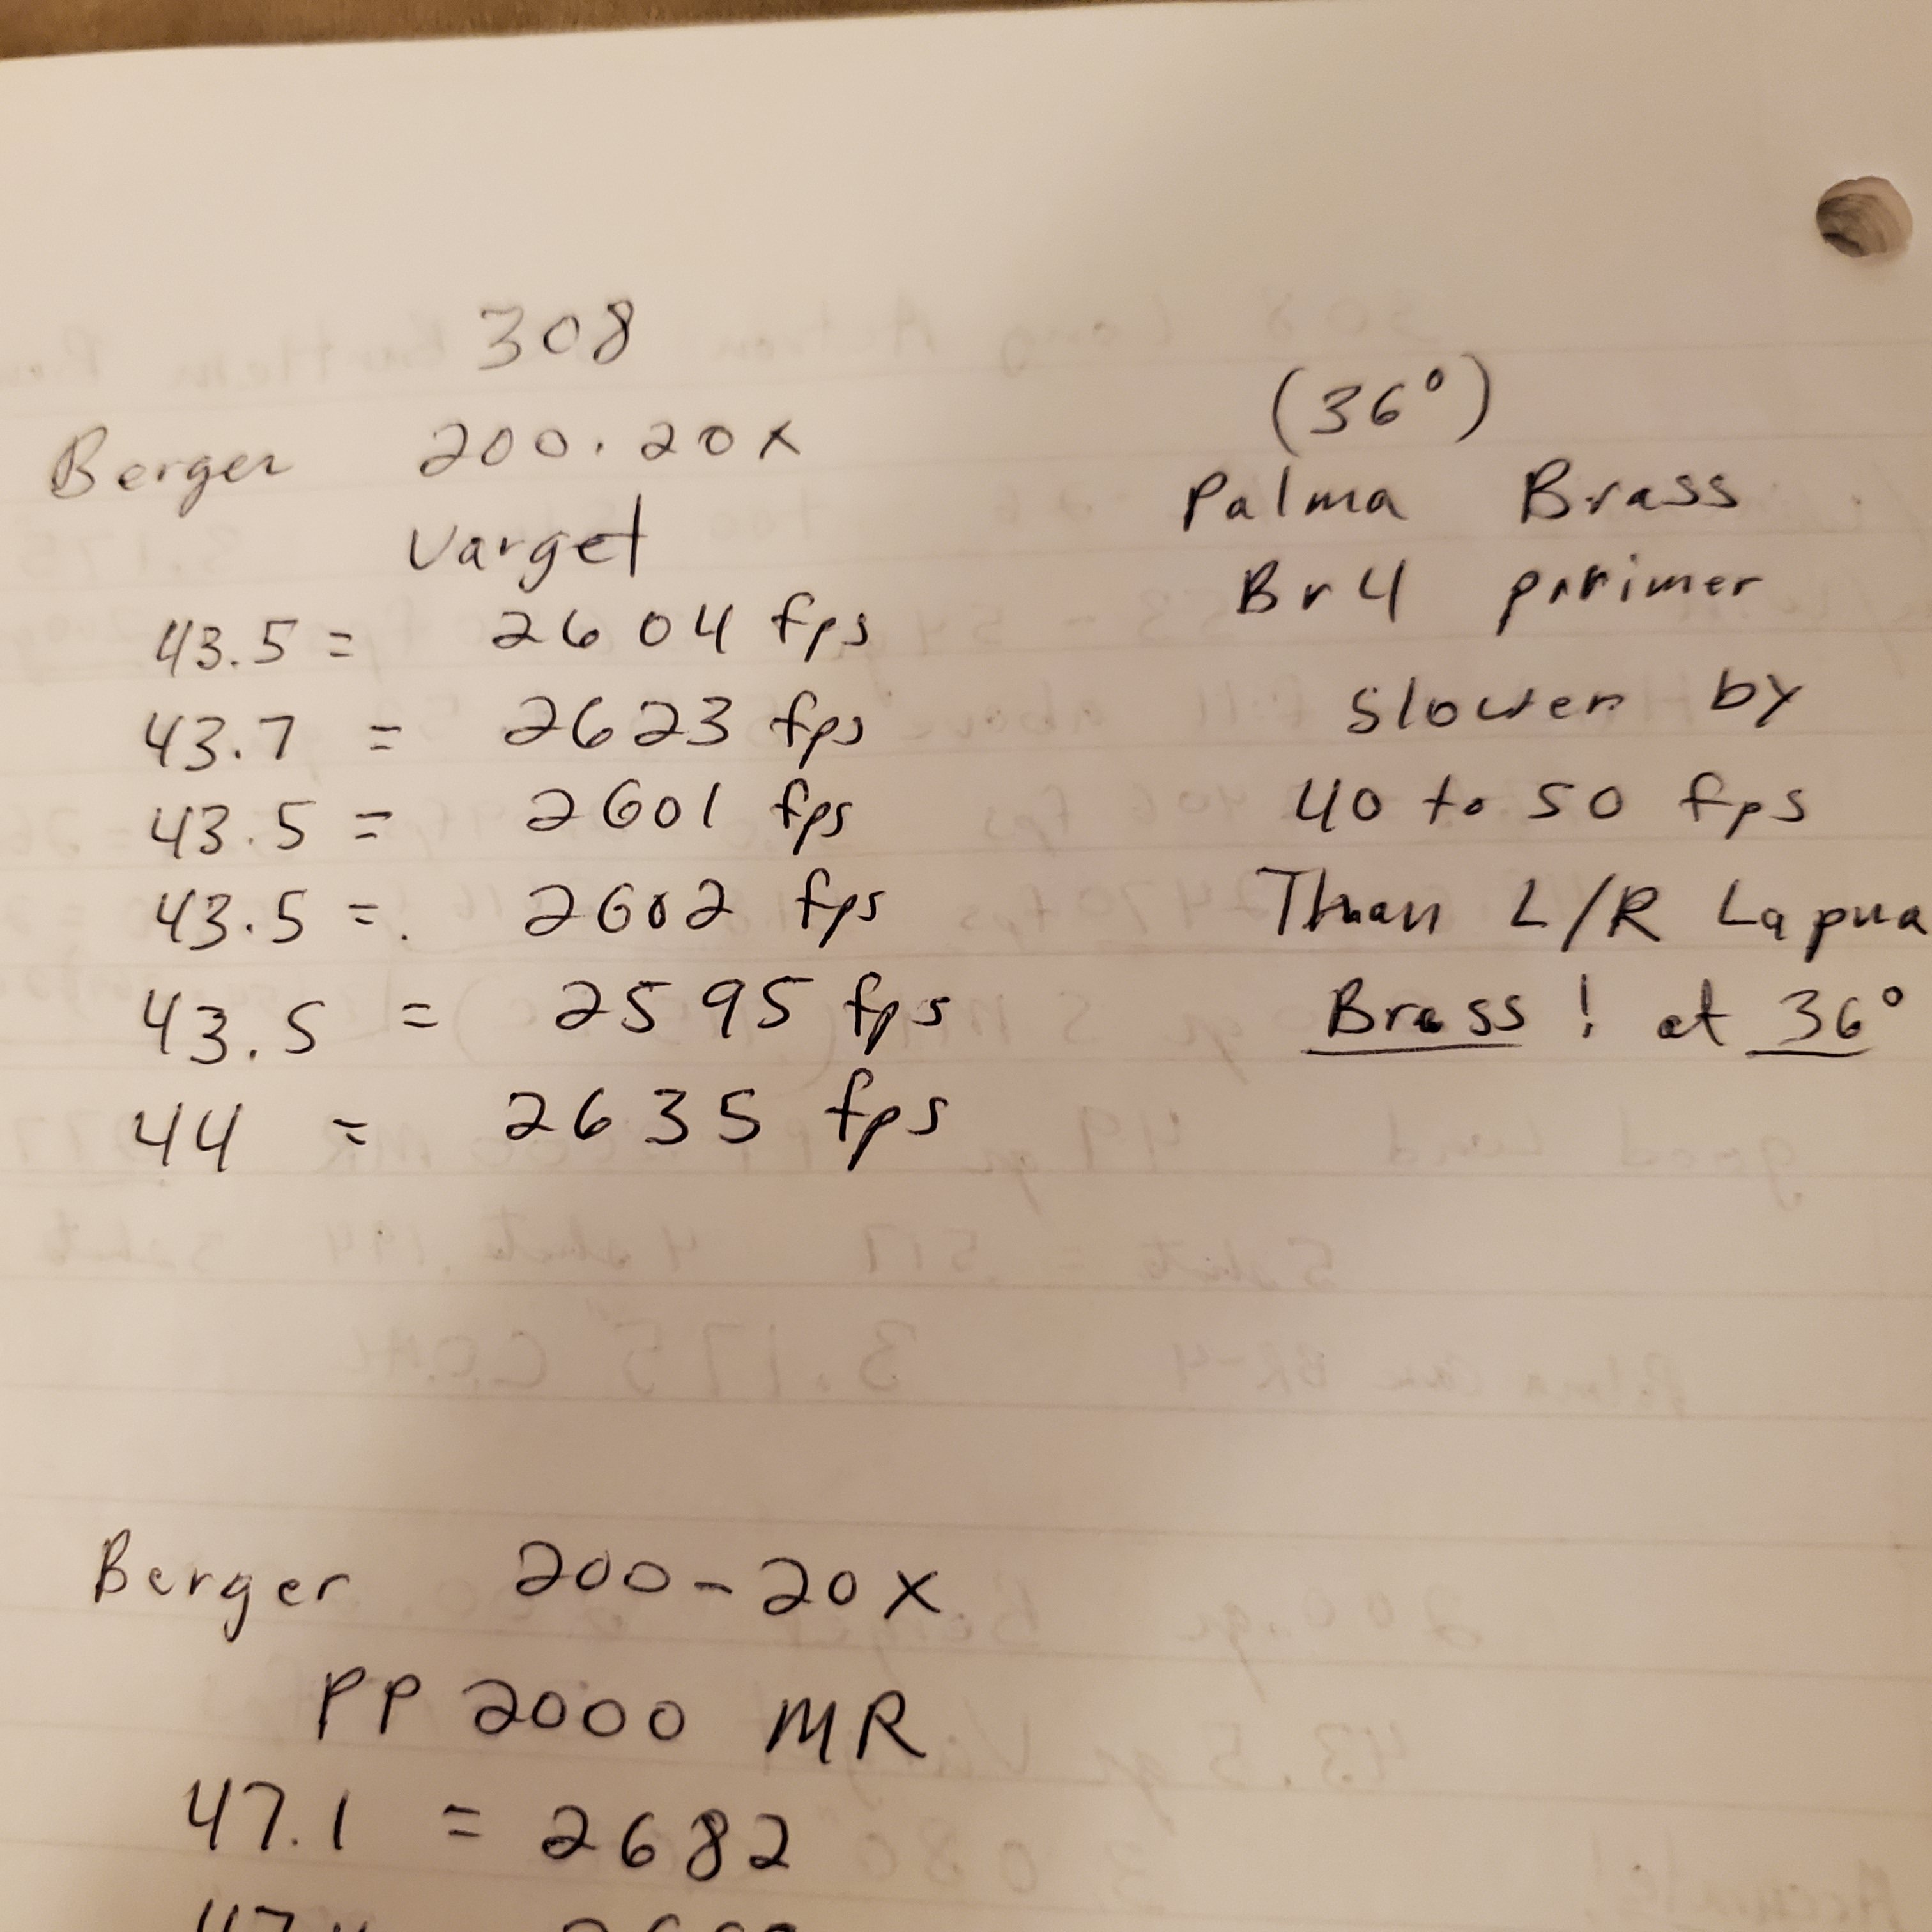 308
Berger 200.20x
Varget
43.5 = 2604 fps
43.7 = 2623 fps
43.5 = 2601 fps
43.5 = 2602 fps
43.5 = 2595 fps
44 = 2635 fps
(36°)
Palma Brass
Br4 primer
Slower by
40 to 50 fps
Than L/R Lapua
Brass! at 36°
Berger 200-20x
PP 2000 MR
47.1 = 2682